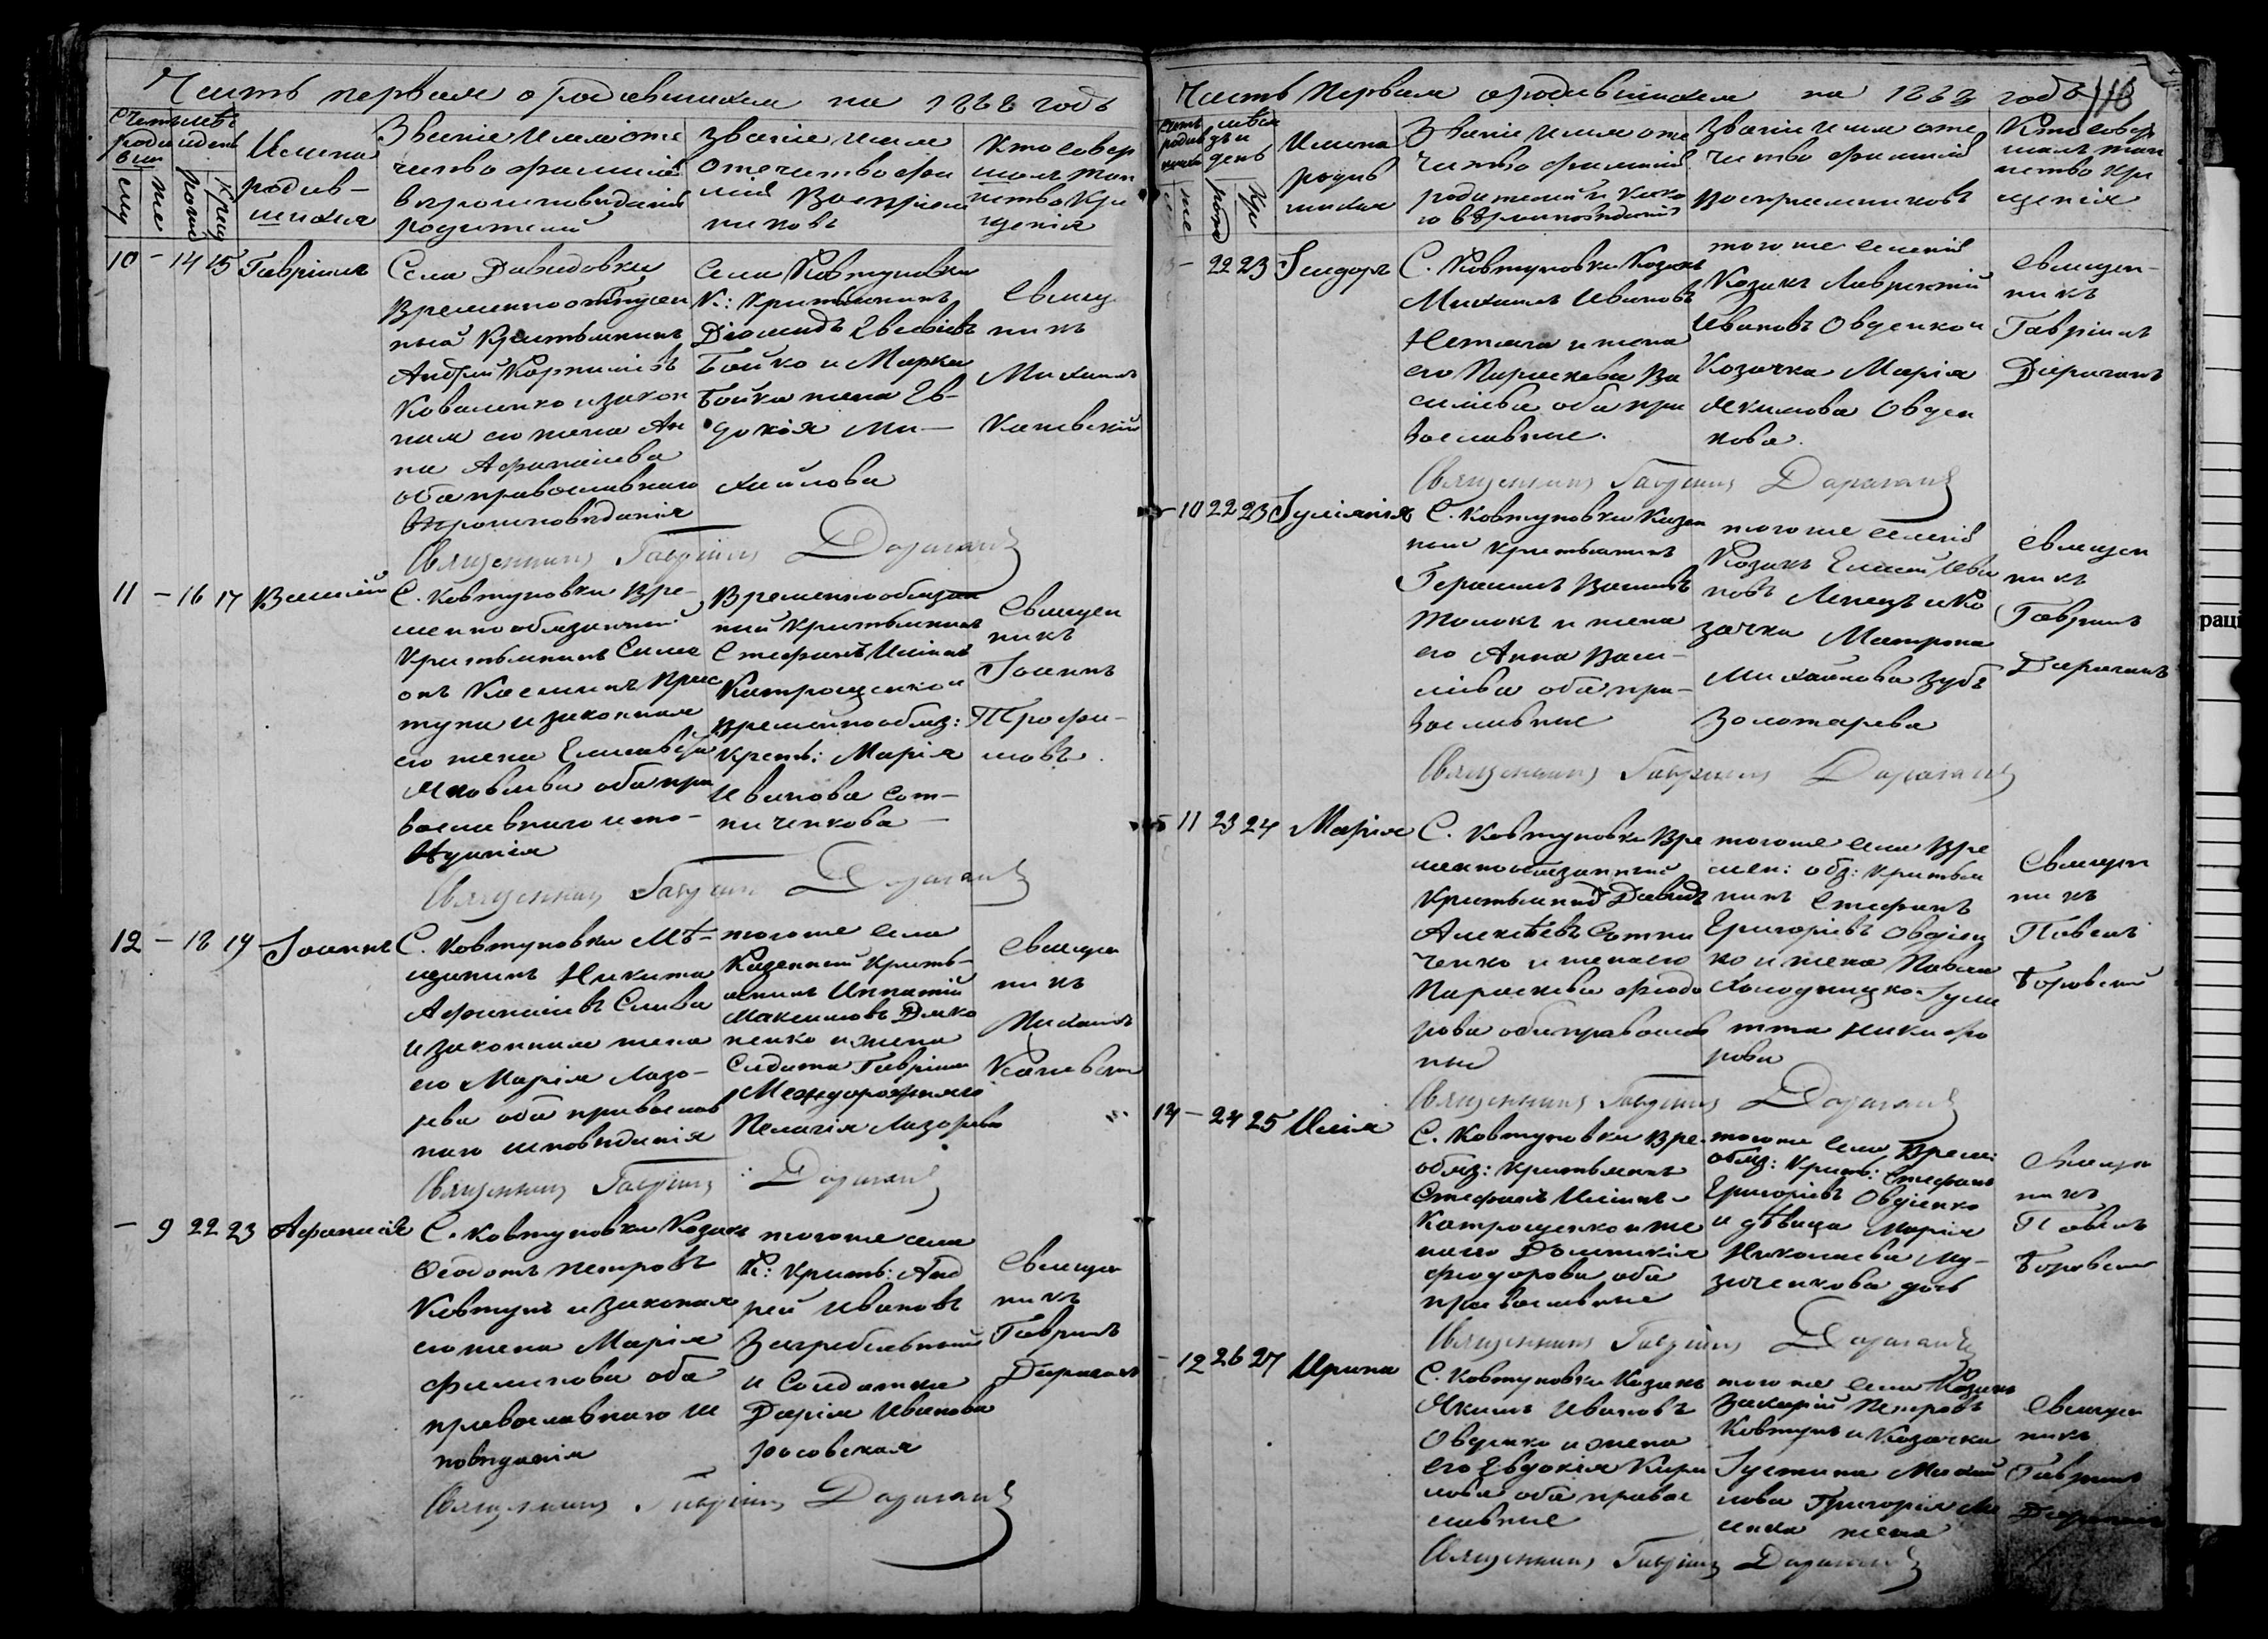 Часть первая о родившихся на 1868 годъ
Счетъ родившихся
мѣсяцъ и день
Имена родив-
шихся
Званіе Имя отче
ство фамилія
вѣроисповѣданія
родителей
Званіе имя
отечество фами
лія Воспріем
никовъ
Кто совер
шалъ таи
нство Кре
щенія
муж
жен
рожд
крещ
10 - 14 15 Гавріилъ
Села Давидовки
Временно
ный Крестьянинъ
Андрей Корниліевъ
Коваленко и закон
ная его жена Ан
на Афанасіева
оба православнаго
вѣроисповѣданія
Села Ковтуновки
К: Крестьянинъ
Діомидъ Евсевіевъ
Бойко и Марка
Бойка жена Ев-
докія Ми-
хайлова
Свящ
никъ
Михаилъ
Каневскій
Священникъ Гавріилъ Дараганъ
11 - 16 17 Василій
С. Ковтуновки Вре-
менно обязанный
Крестьянинъ Симе
онъ Косминъ Прис
тупа и законная
его жена Елисавета
Яковлева оба пра
вославнаго испо-
вѣданія
Временнообязан
ный Крестьянинъ
Стефанъ Иліинъ
Катрощенко и
временнообяз:
Крест: Марія
Иванова Сот-
ниченкова
Священ
никъ
Іоаннъ
Трофи-
мовъ.
Священникъ Гавріилъ Дараганъ
12 - 18 19 Іоаннъ
С. Ковтуновки Мѣ-
щанинъ Никита
Афанасіевъ Слива
и законная жена
его Марія Лазо-
рева оба православ
наго исповѣданія
тогоже села
Казенный Кресть-
янинъ Ипатій
Максимовъ Дяко
ненко и жена
Солдата Гавріила
Пелагія Лазорева
Священ
никъ
Михаилъ
Каневскій
Священникъ Гавріилъ Дараганъ
- 9 22 23 Афанасія
С. Ковтуновки Козакъ
Ѳеодотъ Петровъ
Ковтунъ и законная
его жена Марія
Филипова оба
православнаго ис
повѣданія
тогоже села
К: Кресть: Анд
рей Ивановъ
Загребельный
и Солдатка
Дарія Иванова
Росовская
Священ
никъ
Гавріилъ
Дараганъ
Священникъ Гавріилъ Дараганъ
Часть Первая о родившихся на 1868 годъ
118
мѣсяцъ и день
Имена
родив
шихся
Званіе Имя отче
ство фамилія
родителей и како
го вѣроисповѣданія
Званіе и имя оте
чество фамилія
воспріемниковъ
Кто совер
шалъ таи
нство Кре
щенія
- 22 23 Ісидоръ
С. Ковтуновки Козакъ
Михаилъ Ивановъ
Нетяга и жена
его Параскева Ва
силіева оба пра
вославные.
тогоже селенія
Козакъ Лаврентій
Ивановъ Овденко и
Козачка Марія
Якимова Овден
кова.
Священ-
никъ
Гавріилъ
Дараганъ
Священникъ Гавріилъ Дараганъ
- 10 22 23 Іуліанія
С. Ковтуновки Казен
ный Крестьянинъ
Герасимъ Васильевъ
Толокъ и жена
его Анна Васи-
ліева оба пра-
вославные
тогоже селенія
Козакъ Елисей Ива
новъ Лепецъ и Ко
зачка Матрона
Михайлова Зубъ
Золотарева
Священ
никъ
Гавріилъ
Дараганъ
Священникъ Гавріилъ Дараганъ
11 23 24 Марія
С. Ковтуновки Вре
меннообязанный
Крестьянинъ Давидъ
Алексѣевъ Сотни
ченко и жена его
Параскева Феодо
рова оба православ
ные
тогоже села Вре
мен: обз: Крестья
нинъ Стефанъ
Григоріевъ Овдіен
ко и жена Павла
Холодницко Іули
тта Никифо
рова
Священ
никъ
Павелъ
Боровскій
Священникъ Гавріилъ Дараганъ
14 - 24 25 Илія
С. Ковтуновки Вре.
обяз: Крестьянинъ
Стефанъ Иліинъ
Катрощенко и же
на его Домникія
Феодорова оба
православные
тогоже села Врем:
обяз: Кресть: Стефанъ
Григоріевъ Овдіенко
и дѣвица Марія
Николаева Му-
зиченкова дочь
Священ
никъ
Павелъ
Боровскій
Священникъ Гавріилъ Дараганъ
- 12 26 27 Ирина
С. Ковтуновки Козакъ
Якимъ Ивановъ
Овденко и жена
его Евдокія Кири
лова оба правос
лавные
тогоже села Козакъ
Захарій Петровъ
Ковтунъ и Козачка
Іустина Михай
лова Григорія
жена
Священ
никъ
Гавріилъ
Дараганъ
Священникъ Гавріилъ Дараганъ
раці